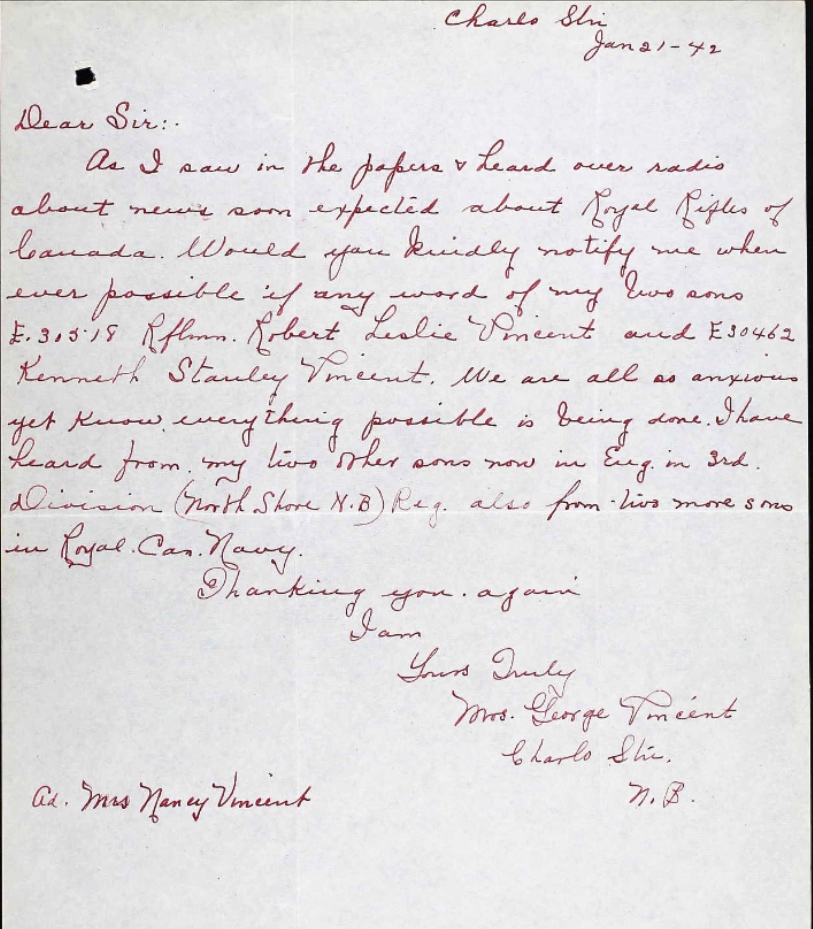 Charlo Stn
Jan 21-42
Dear Sir:.
As I saw in the papers & heard over radio
about news soon expected about Royal Rifles of
Canada. Would you kindly notify me when
ever possible if any word of my two sons
E.30518 Rflmn. Robert Leslie Vincent and E30462
Kenneth Stanley Vincent. We are all so anxious
yet know everything possible is being done. I have
heard from my two other sons now in Eng. in 3rd.
Division (North Shore N.B) Reg. also from two more sons
in Royal. Can. Navy.
Thanking you. again
I am
Yours Truly
Mrs. George Vincent
Charlo Stn.
N.B.
Ad. Mrs Nancy Vincent